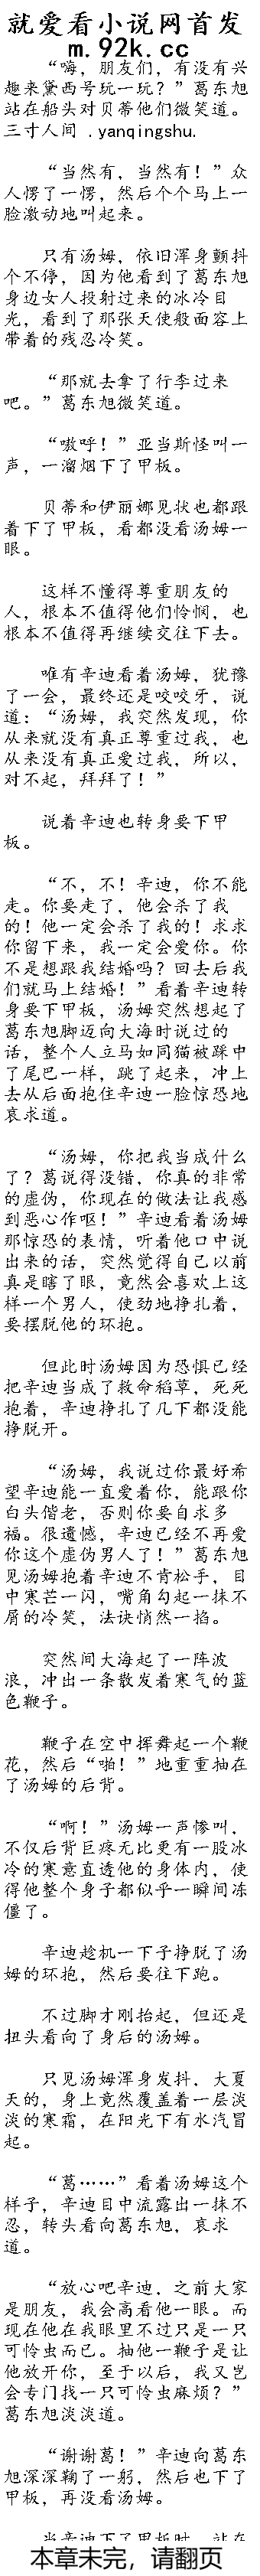 就爱看小说网首发
m.92k.cc
“嗨，朋友们，有没有兴
趣来黛西号玩一玩？”葛东旭
站在船头对贝蒂他们微笑道。
三寸人间 .yanqingshu.
“当然有，当然有！”众
人愣了一愣，然后个个马上一
脸激动地叫起来。
只有汤姆，依旧浑身颤抖
个不停，因为他看到了葛东旭
身边女人投射过来的冰冷目
光，看到了那张天使般面容上
带着的残忍冷笑。
“那就去拿了行李过来
吧。”葛东旭微笑道。
“嗷呼！”亚当斯怪叫一
声，一溜烟下了甲板。
贝蒂和伊丽娜见状也都跟
着下了甲板，看都没看汤姆一
眼。
这样不懂得尊重朋友的
人，根本不值得他们怜悯，也
根本不值得再继续交往下去。
唯有辛迪看着汤姆，犹豫
了一会，最终还是咬咬牙，说
道：“汤姆，我突然发现，你
从来就没有真正尊重过我，也
从来没有真正爱过我，所以，
对不起，拜拜了！”
说着辛迪也转身要下甲
板。
“不，不！辛迪，你不能
走。你要走了，他会杀了我
的！他一定会杀了我的！求求
你留下来，我一定会爱你。你
不是想跟我结婚吗？回去后我
们就马上结婚！”看着辛迪转
身要下甲板，汤姆突然想起了
葛东旭脚迈向大海时说过的
话，整个人立马如同猫被踩中
了尾巴一样，跳了起来，冲上
去从后面抱住辛迪一脸惊恐地
哀求道。
“汤姆，你把我当成什么
了？葛说得没错，你真的非常
的虚伪，你现在的做法让我感
到恶心作呕！”辛迪看着汤姆
那惊恐的表情，听着他口中说
出来的话，突然觉得自己以前
真是瞎了眼，竟然会喜欢上这
样一个男人，使劲地挣扎着，
要摆脱他的环抱。
但此时汤姆因为恐惧已经
把辛迪当成了救命稻草，死死
抱着，辛迪挣扎了几下都没能
挣脱开。
“汤姆，我说过你最好希
望辛迪能一直爱着你，能跟你
白头偕老，否则你要自求多
福。很遗憾，辛迪已经不再爱
你这个虚伪男人了！”葛东旭
见汤姆抱着辛迪不肯松手，目
中寒芒一闪，嘴角勾起一抹不
屑的冷笑，法诀悄然一掐。
突然间大海起了一阵波
浪，冲出一条散发着寒气的蓝
色鞭子。
鞭子在空中挥舞起一个鞭
花，然后“啪！”地重重抽在
了汤姆的后背。
“啊！”汤姆一声惨叫，
不仅后背巨疼无比更有一股冰
冷的寒意直透他的身体内，使
得他整个身子都似乎一瞬间冻
僵了。
辛迪趁机一下子挣脱了汤
姆的环抱，然后要往下跑。
不过脚才刚抬起，但还是
扭头看向了身后的汤姆。
只见汤姆浑身发抖，大夏
天的，身上竟然覆盖着一层淡
淡的寒霜，在阳光下有水汽冒
起。
“葛……”看着汤姆这个
样子，辛迪目中流露出一抹不
忍，转头看向葛东旭，哀求
道。
“放心吧辛迪，之前大家
是朋友，我会高看他一眼。而
现在他在我眼里不过只是一只
可怜虫而已。抽他一鞭子是让
他放开你，至于以后，我又岂
会专门找一只可怜虫麻烦？”
葛东旭淡淡道。
“谢谢葛！”辛迪向葛东
旭深深鞠了一躬，然后也下了
甲板，再没看汤姆。
当辛迪下了甲板时，站在
本章未完，请翻页